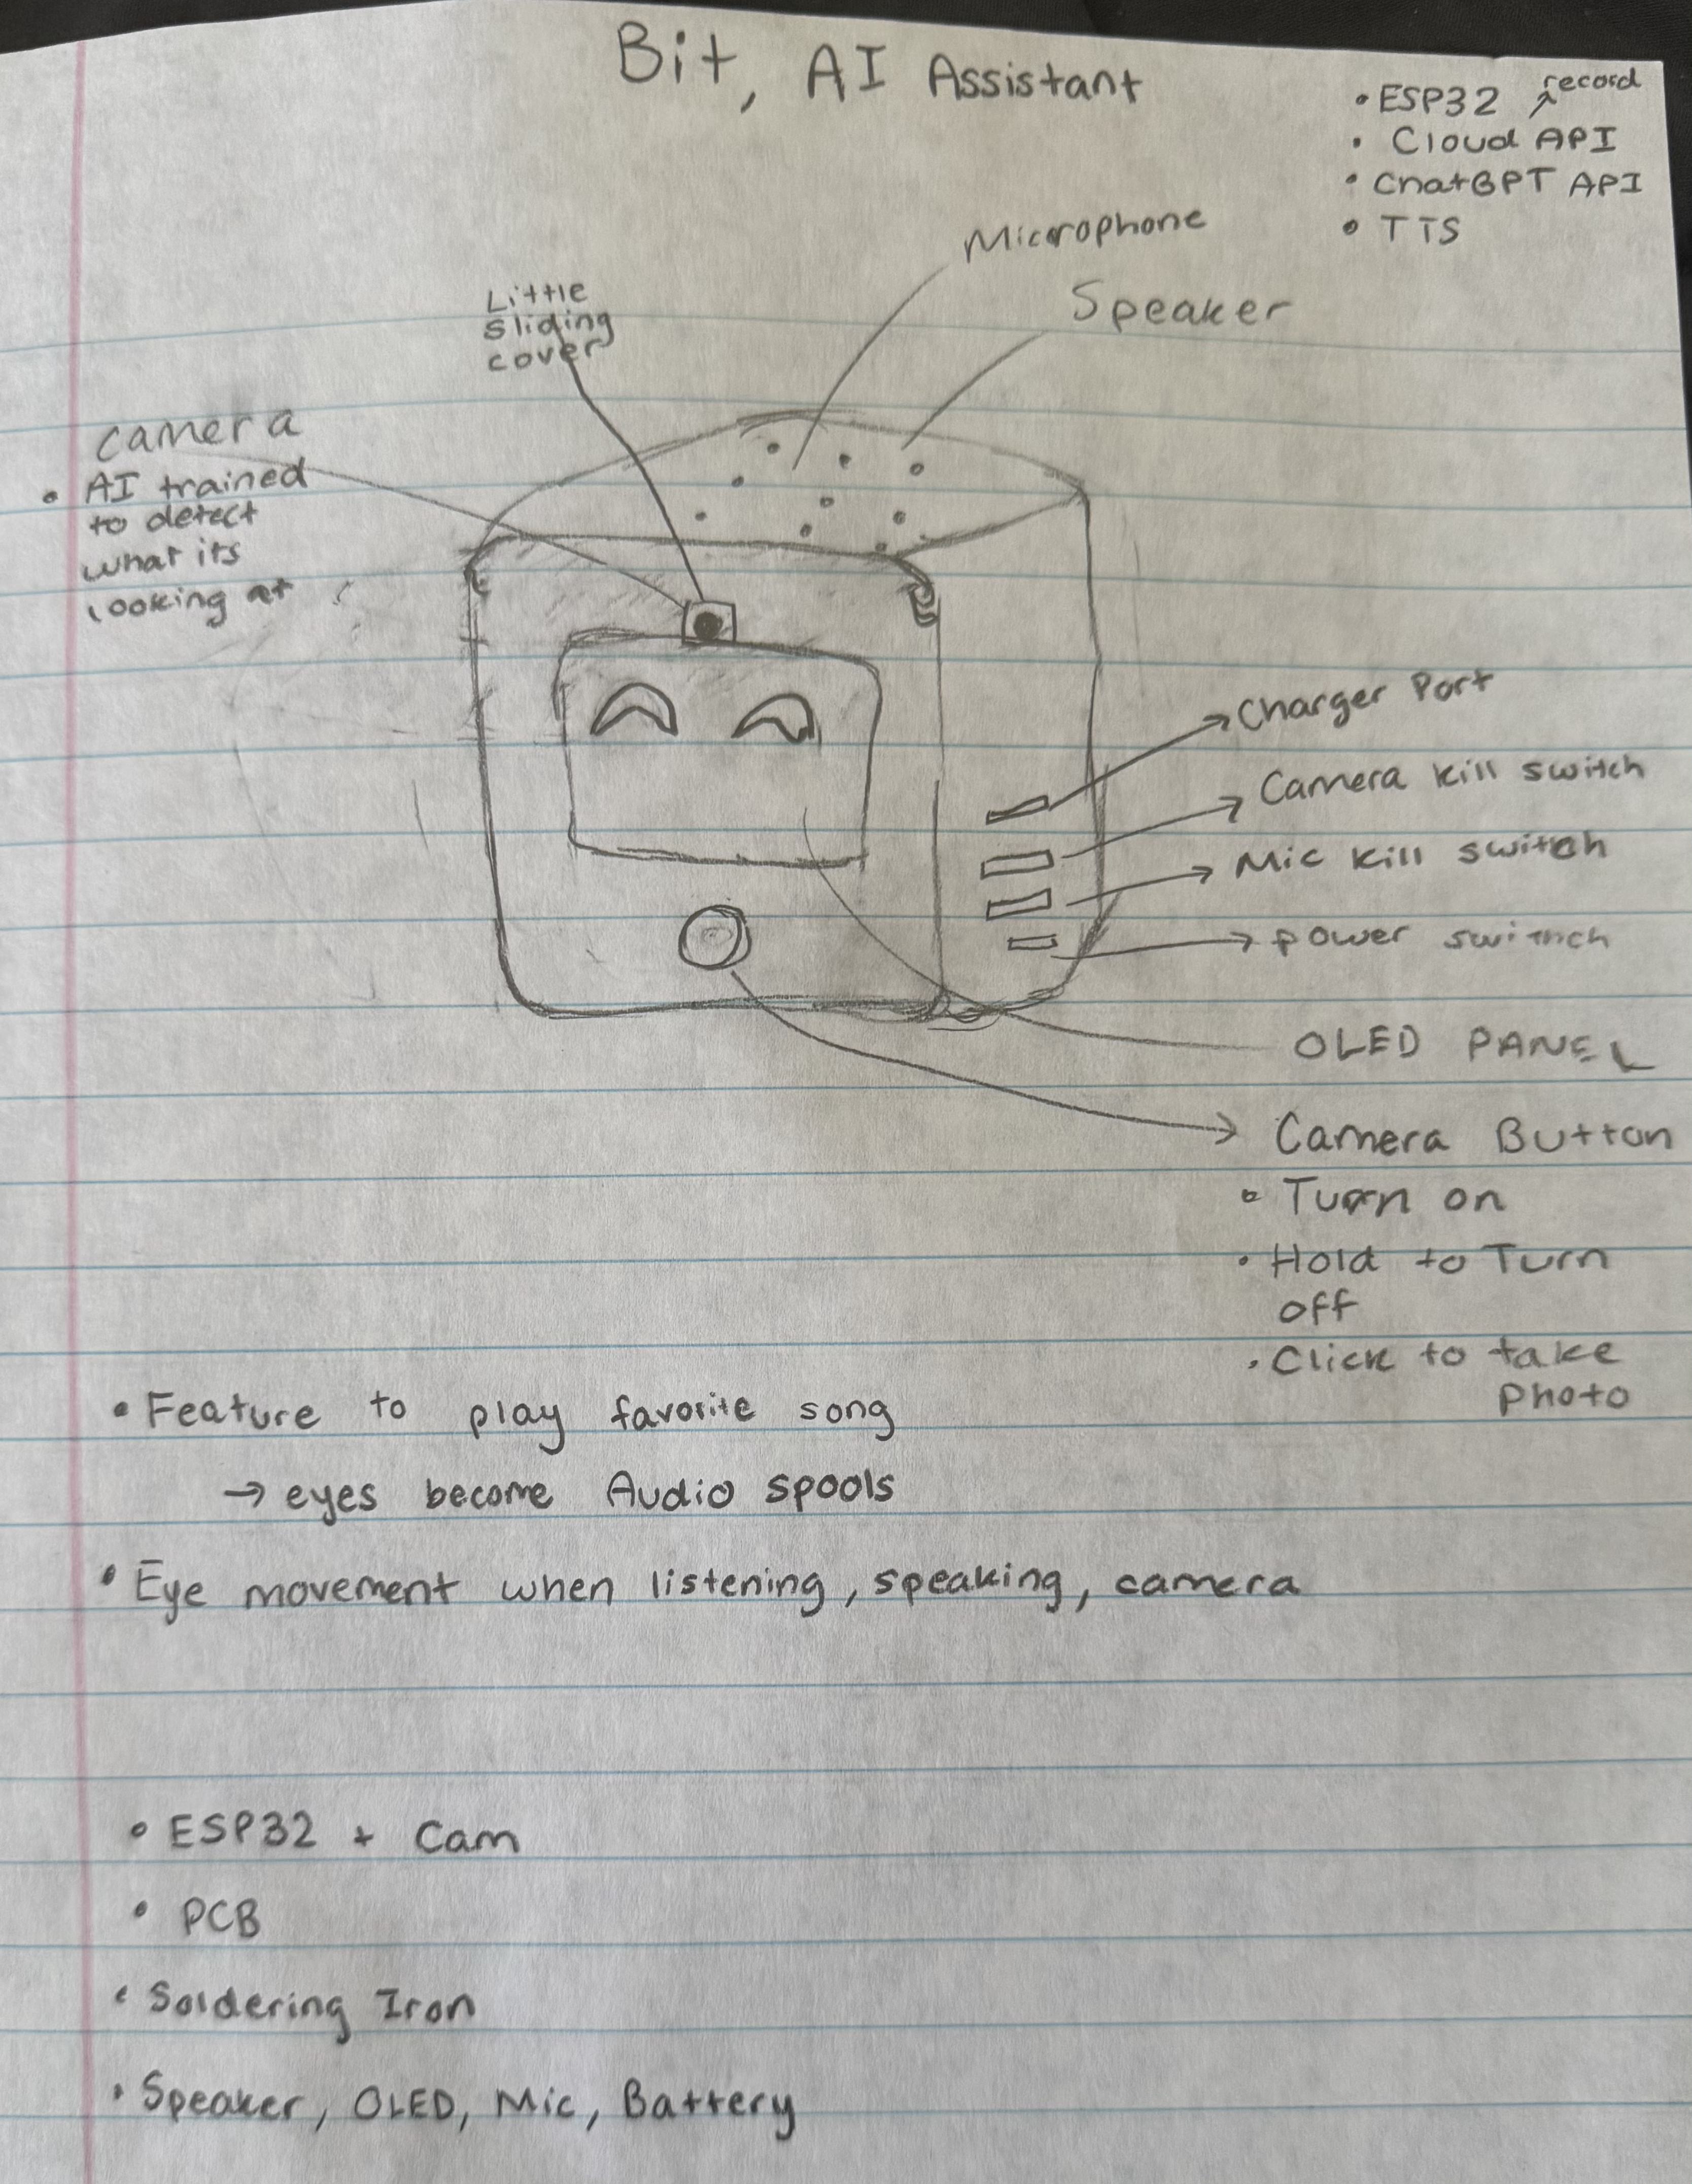 Bit, AI Assistant
• ESP32 ↗ record
• Cloud API
• ChatGPT API
• TTS
Microphone
Speaker
Little
sliding
cover
camera
• AI trained
to detect
what its
looking at
Charger Port
Camera kill switch
Mic kill switch
power switnch
OLED PANEL
Camera Button
• Turn on
• Hold to Turn
off
• Click to take
Photo
• Feature to play favorite song
→ eyes become Audio spools
• Eye movement when listening, speaking, camera
• ESP32 + Cam
• PCB
• Soldering Iron
• Speaker, OLED, Mic, Battery